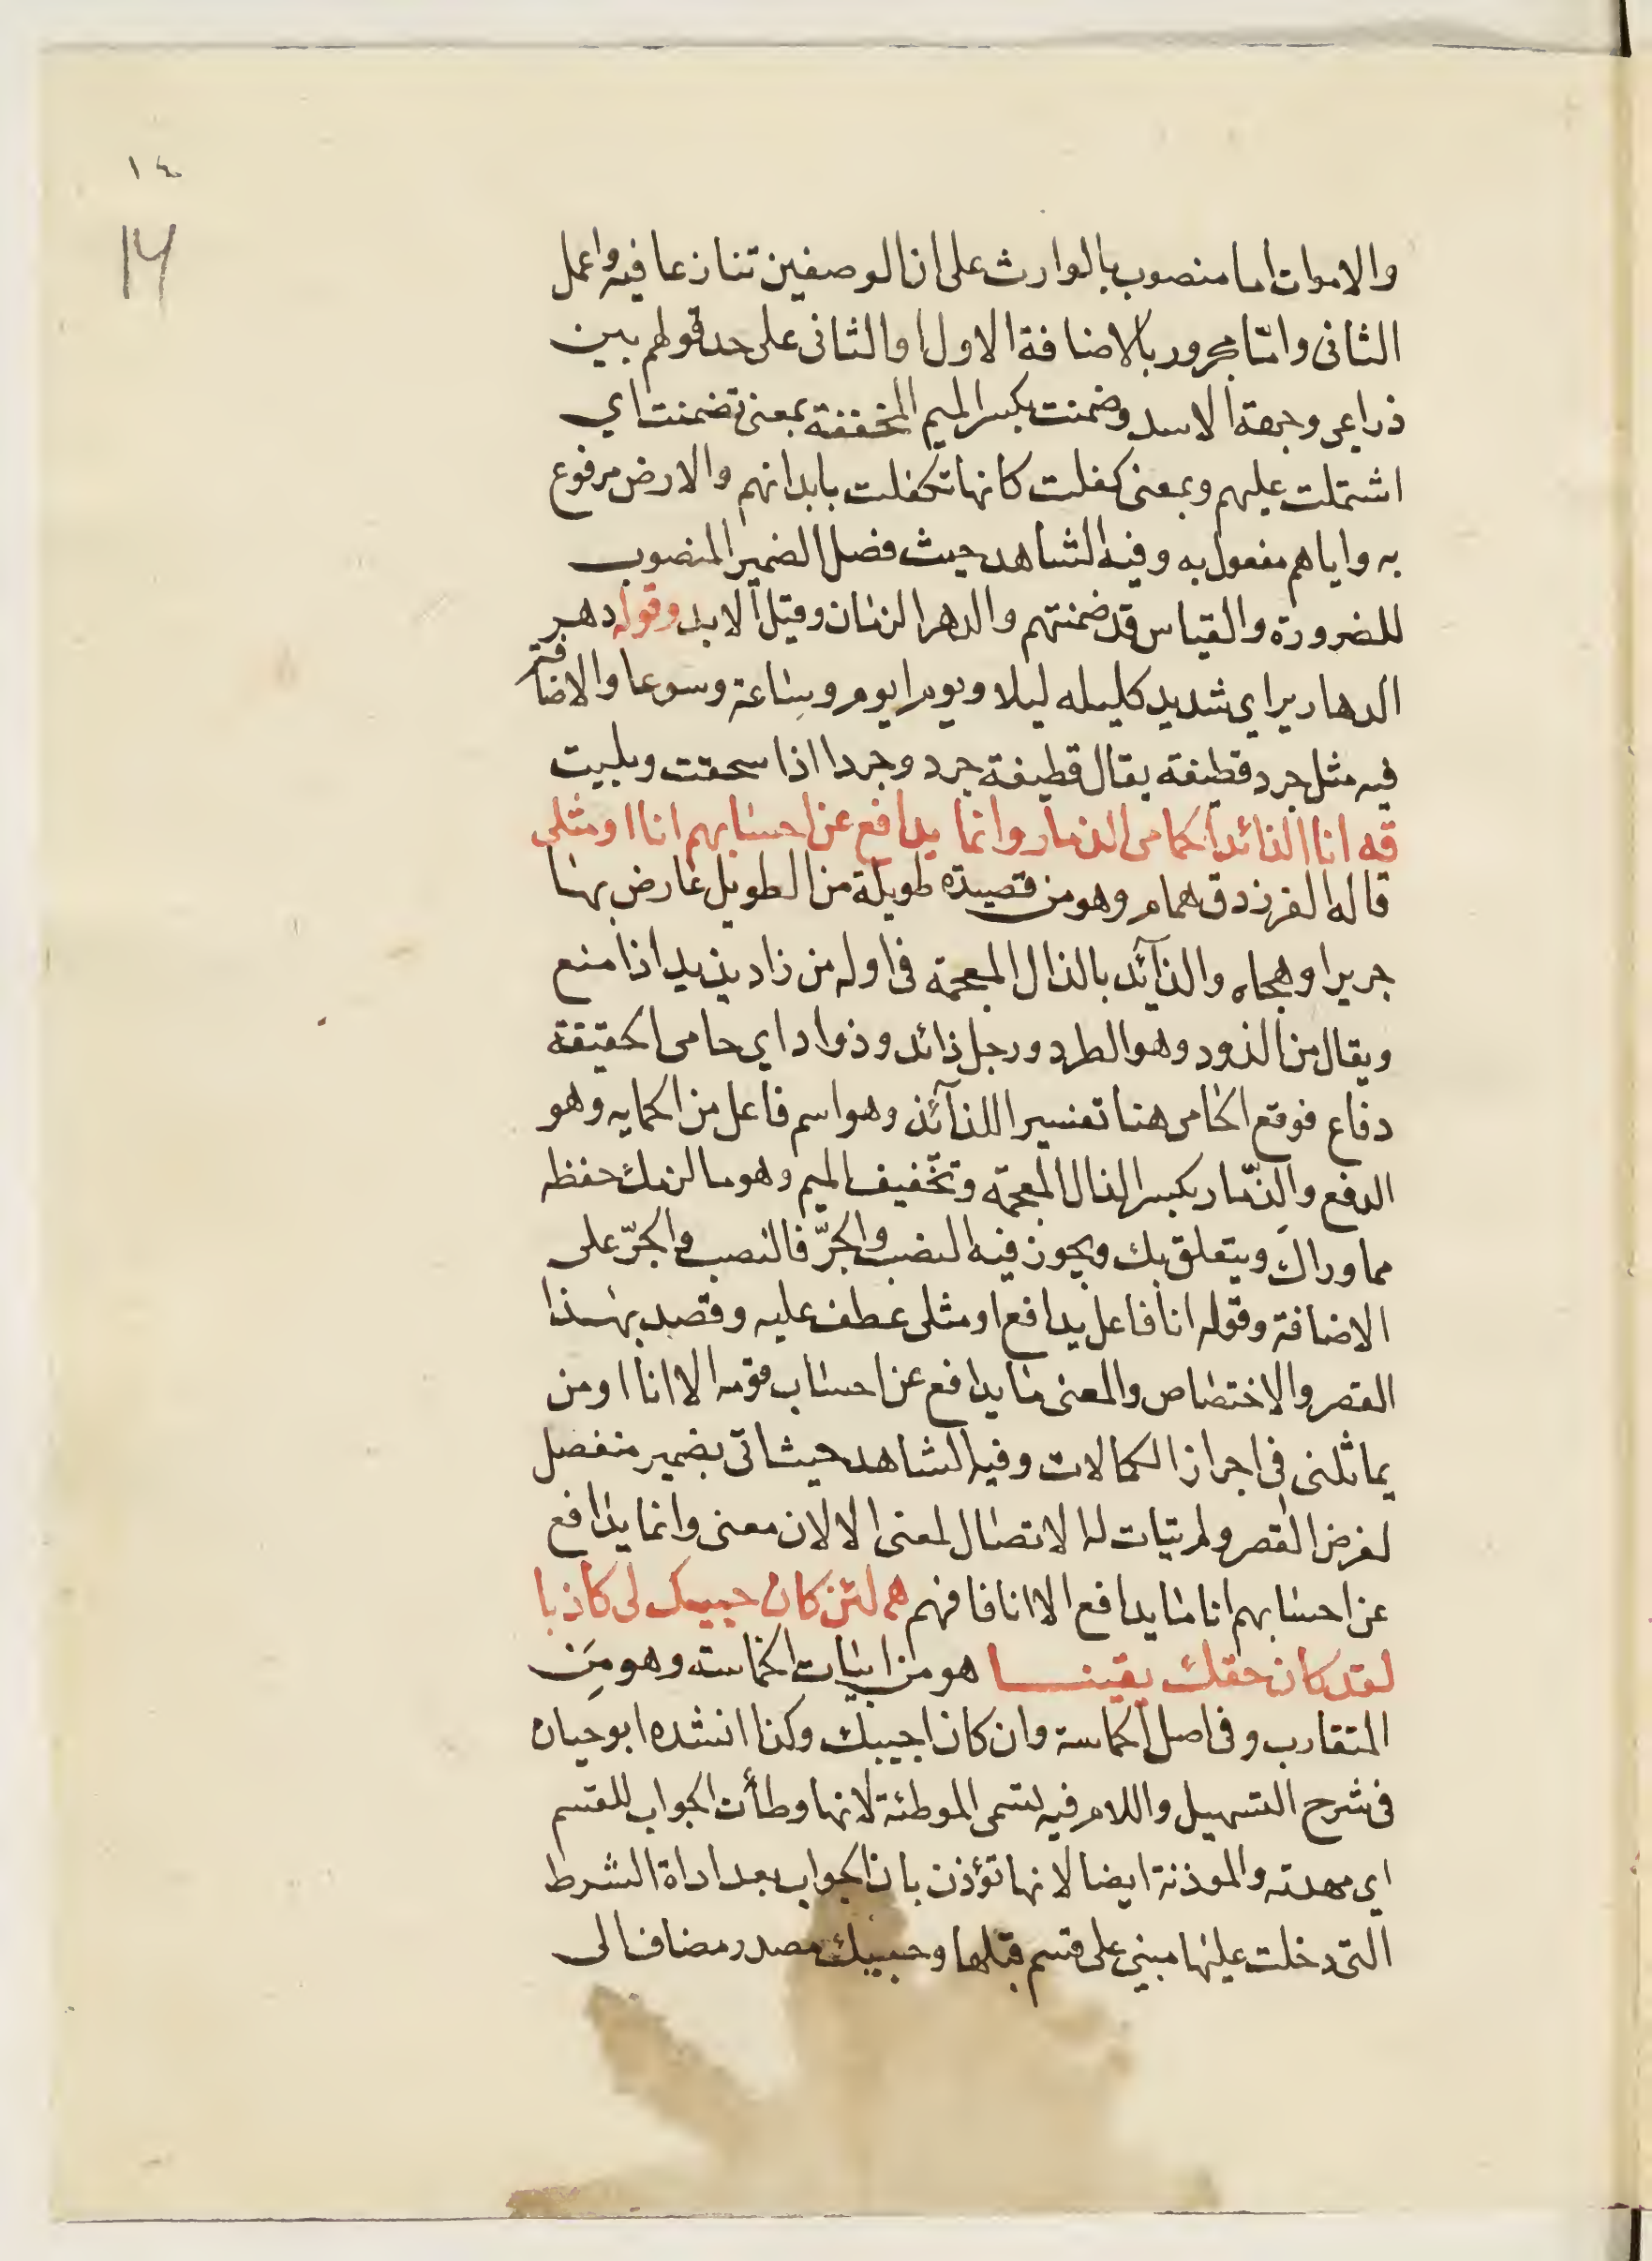 ١٤
14
والاموات اما منصوب بالوارث على ان الوصفين تنازعا فيه واعمل
الثانى وامّا مجرور بالاضافة الاول او الثانى على حد قولهم بين
ذراعى وجبهة الاسد وضمنت بكسر الميم المخففة بمعنى تضمنت اي
اشتملت عليهم وبمعنى كفلت كانها تكفلت بابدانهم والارض مرفوع
به واياهم مفعول به وفيه الشاهد حيث فصل الضمير المنصوب
للضرورة والقياس قد ضمنتهم والدهر الزمان وقيل الابد وقوله دهر
الدهارير اي شديد كليله ليلا ويوم ايوم وساعة وسوعا والاضافة
فيه مثل جرد قطيفة يقال قطيفة جرد وجردا اذا سحقت وبليت
قه انا الذائد الحامى الذمار وانما يدافع عن احسابهم انا او مثلى
قاله الفرزدق همام وهو من قصيدة طويلة من الطويل عارض بها
جريرا وهجاه والذآئد بالذال المعجمة فى اوله من زاد يذيد اذا منع
ويقال من الذود وهو الطرد ورجل ذائد وذواد اي حامى الحقيقة
دفاع فوقع الحامى هنا تفسيرا للذآئذ وهو اسم فاعل من الحمايه وهو
الدفع والذّمار بكسر الذال المعجمة وتخّفيف الميم وهو ما لزمك حفظه
مما وراك ويتعلق بك ويجوز فيه النصب والجرّ فالنصب والجرّ على
الاضافة وقوله انا فاعل يدافع او مثلى عطف عليه وقصد بهذا
القصر والاختصاص والمعنى ما يدافع عن احساب قومه الا انا او من
يماثلنى فى احراز الكمالات وفيه الشاهد حيث اتى بضمير منفصل
لغرض القصر ولم يتيات له الاتصال لمعنى الا لان معنى وانما يدافع
عن احسابهم انا ما يدافع الا انا فافهم هم لئن كان حبيبك لى كاذبا
لقد كان حقك يقينا هو من ابيات الحماسة وهو مِن
المتقارب وفى اصل الحماسة وان كان احبيبك وكذا انشده ابو حيان
فى شرح التسهيل واللام فيه لتسمى الموطئة لانها وطأت الجواب للقسم
اي مهدته والموذنة ايضا لانها تؤذن بان الجواب بعد اداة الشرط
التى دخلت عليها مبنى على قسم قبلها وحبيبك مصدر مضاف الى